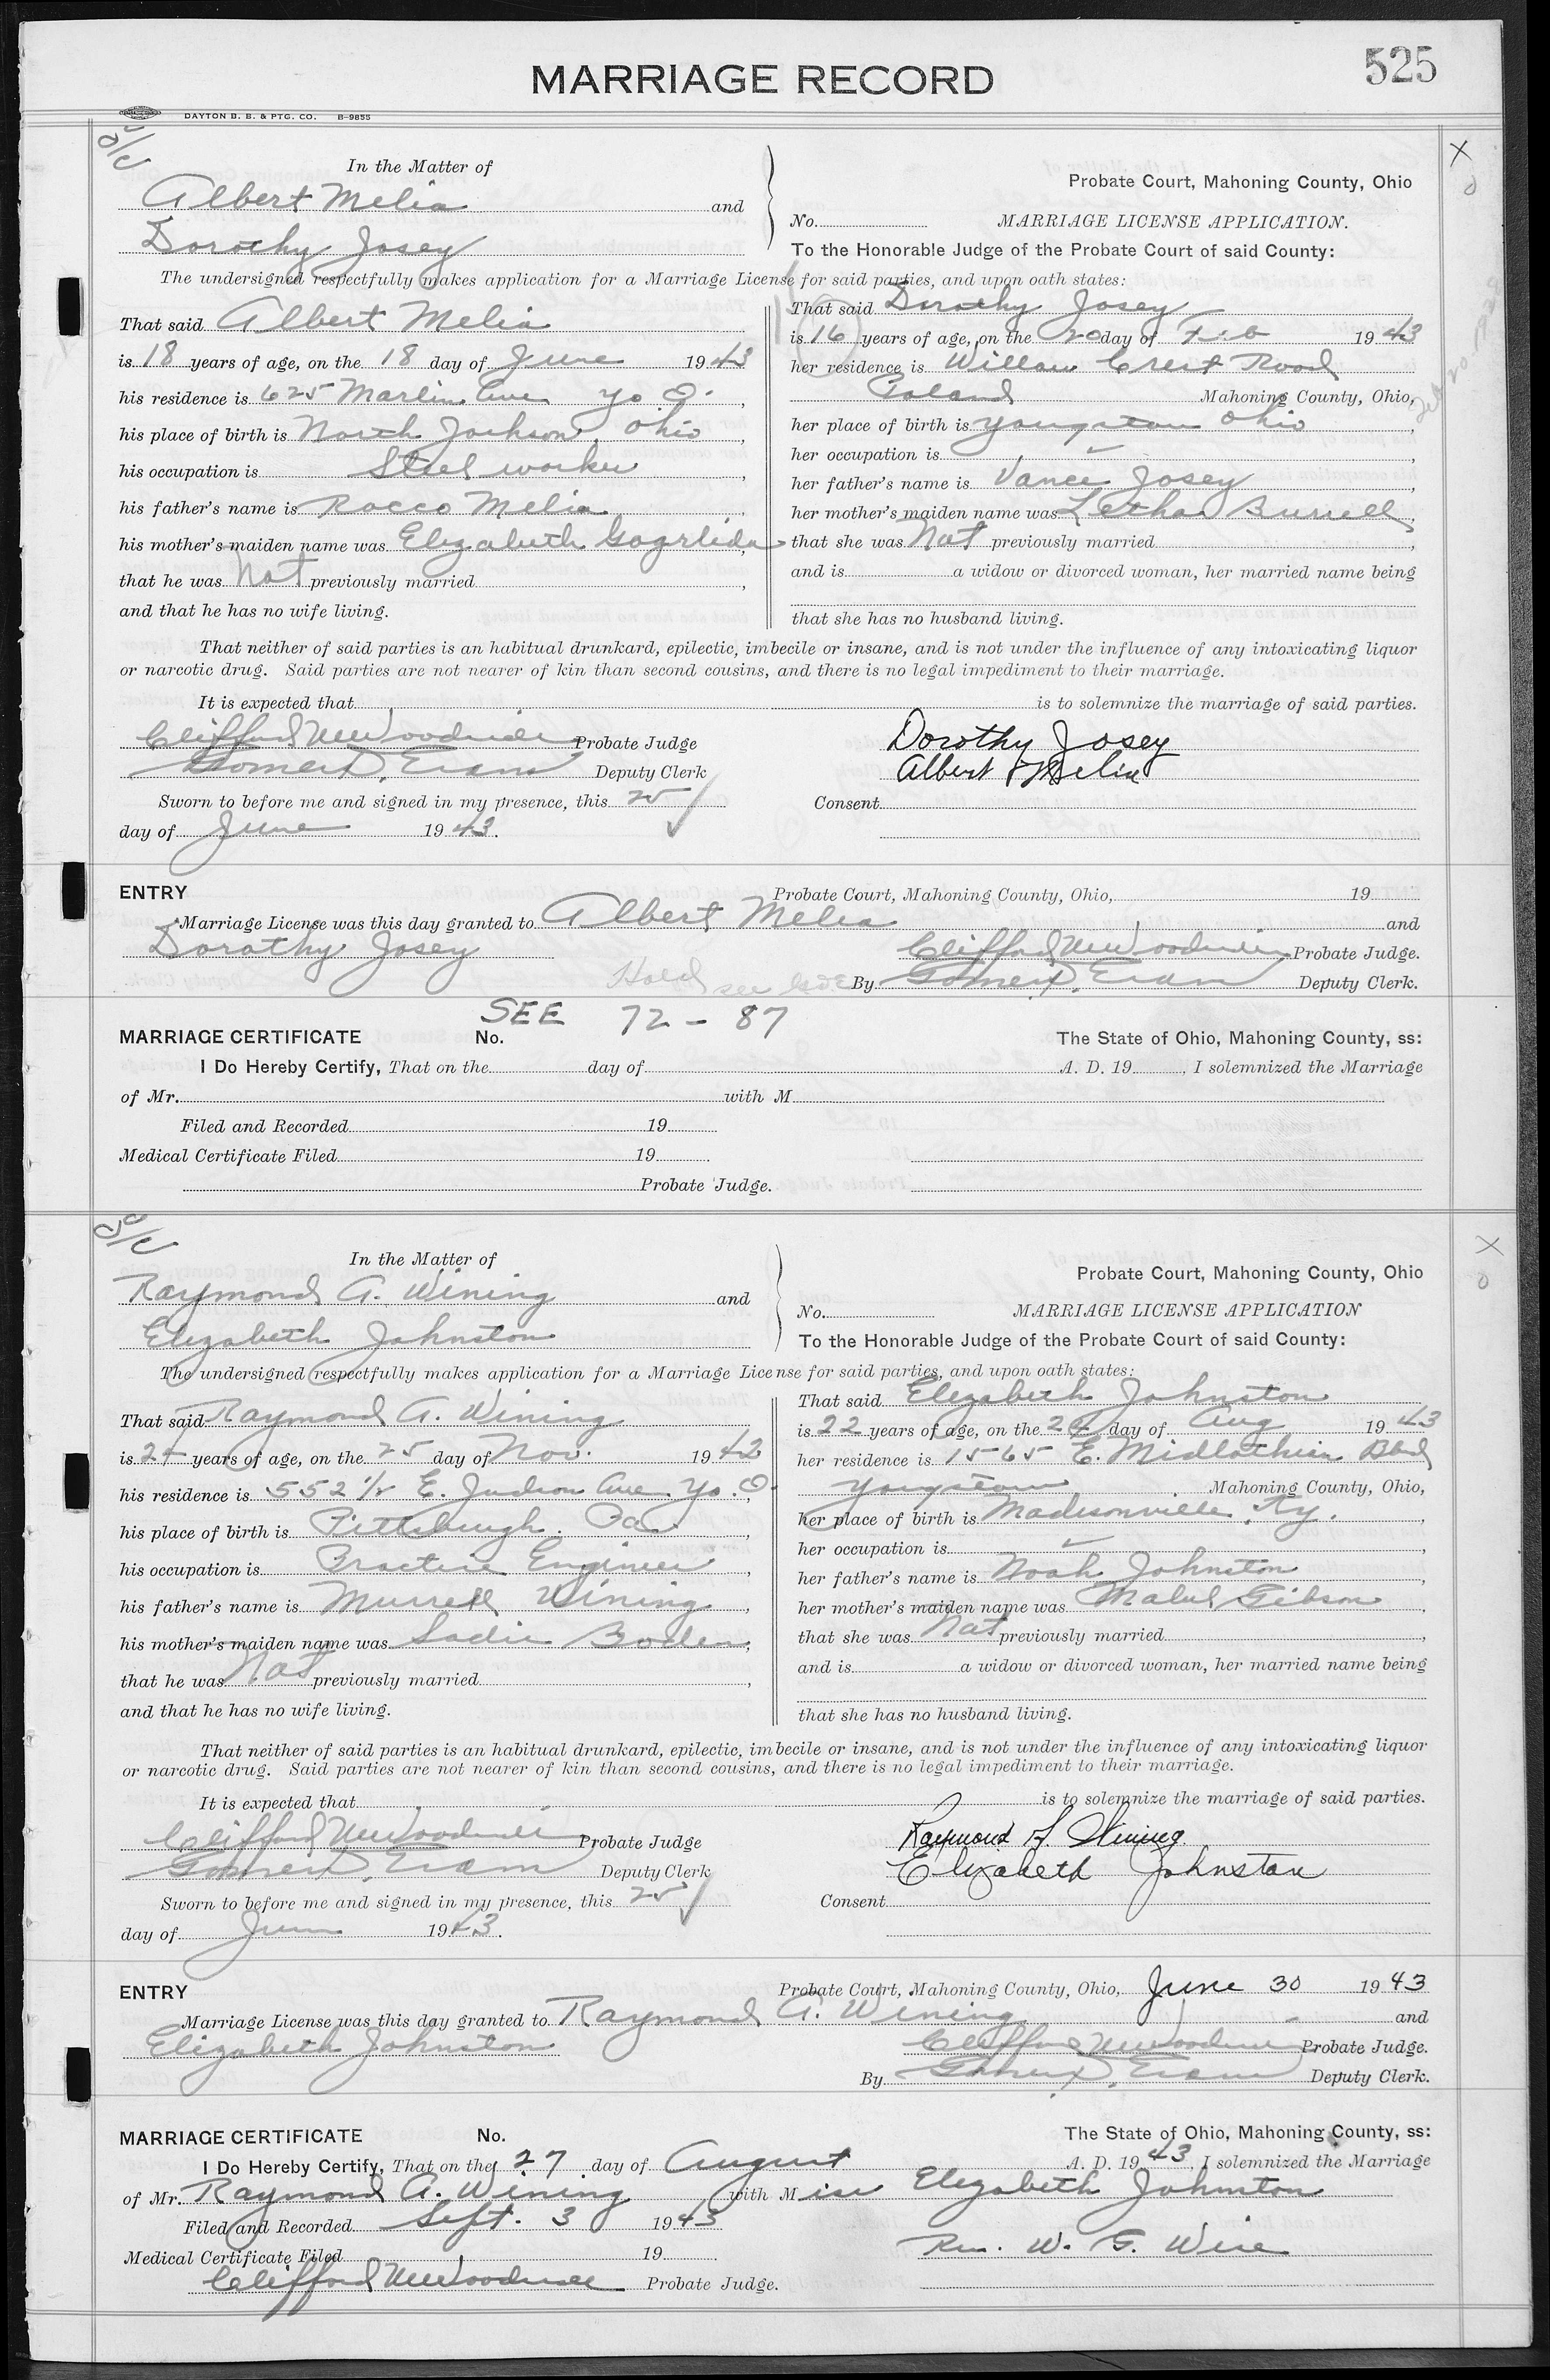 525
MARRIAGE RECORD
DAYTON B. B. & PTG. CO. B-9855
In the Matter of
Albert Melia and
Dorothy Josey
Probate Court, Mahoning County, Ohio
No. MARRIAGE LICENSE APPLICATION.
To the Honorable Judge of the Probate Court of said County:
The undersigned respectfully makes application for a Marriage License for said parties, and upon oath states:
That said Albert Melia
is 18 years of age, on the 18 day of June 1943
his residence is 625 Marlin Ave Yo. O.
his place of birth is North Jackson, Ohio
his occupation is Steel worker
his father's name is Rocco Melia
his mother's maiden name was Elizabeth
that he was Not previously married
and that he has no wife living.
That said Dorothy Josey
is 16 years of age, on the 20 day of Feb 1943
her residence is Willow Crest Road
Poland Mahoning County, Ohio,
her place of birth is Youngstown Ohio
her occupation is
her father's name is Vance Josey
her mother's maiden name was Letha Burrell
that she was Not previously married
and is a widow or divorced woman, her married name being
that she has no husband living.
That neither of said parties is an habitual drunkard, epilectic, imbecile or insane, and is not under the influence of any intoxicating liquor
or narcotic drug. Said parties are not nearer of kin than second cousins, and there is no legal impediment to their marriage.
It is expected that is to solemnize the marriage of said parties.
Clifford M Woodside Probate Judge
Gomer D. Evans Deputy Clerk
Sworn to before me and signed in my presence, this 25
day of June 1943.
Dorothy Josey
Albert Melia
Consent
ENTRY Probate Court, Mahoning County, Ohio, 19
Marriage License was this day granted to Albert Melia and
Dorothy Josey Clifford M Woodside Probate Judge.
Hold see By Gomer D. Evans Deputy Clerk.
SEE 72 - 87
MARRIAGE CERTIFICATE No. The State of Ohio, Mahoning County, ss:
I Do Hereby Certify, That on the day of A. D. 19 , I solemnized the Marriage
of Mr. with M
Filed and Recorded 19
Medical Certificate Filed 19
Probate Judge.
In the Matter of
Raymond A. Wining and
Elizabeth Johnston
Probate Court, Mahoning County, Ohio
No. MARRIAGE LICENSE APPLICATION
To the Honorable Judge of the Probate Court of said County:
The undersigned respectfully makes application for a Marriage License for said parties, and upon oath states:
That said Raymond A. Wining
is 24 years of age, on the 25 day of Nov. 1942
his residence is 552 1/2 E. Judson Ave. Yo. O.
his place of birth is Pittsburgh. Pa.
his occupation is Practice Engineer
his father's name is Murrell Wining
his mother's maiden name was Sadie Boden
that he was Not previously married
and that he has no wife living.
That said Elizabeth Johnston
is 22 years of age, on the 24 day of Aug 1943
her residence is 1565 E. Midlothian Blvd
Youngstown Mahoning County, Ohio,
her place of birth is Madisonville, Ky.
her occupation is
her father's name is Noah Johnston
her mother's maiden name was Mabel Gibson
that she was Not previously married
and is a widow or divorced woman, her married name being
that she has no husband living.
That neither of said parties is an habitual drunkard, epilectic, imbecile or insane, and is not under the influence of any intoxicating liquor
or narcotic drug. Said parties are not nearer of kin than second cousins, and there is no legal impediment to their marriage.
It is expected that is to solemnize the marriage of said parties.
Clifford M Woodside Probate Judge
Gomer D. Evans Deputy Clerk
Sworn to before me and signed in my presence, this 25
day of June 1943.
Raymond A. Wining
Elizabeth Johnston
Consent
ENTRY Probate Court, Mahoning County, Ohio, June 30 1943
Marriage License was this day granted to Raymond A. Wining and
Elizabeth Johnston Clifford M Woodside Probate Judge.
By Gomer D. Evans Deputy Clerk.
MARRIAGE CERTIFICATE No. The State of Ohio, Mahoning County, ss:
I Do Hereby Certify, That on the 27 day of August A. D. 1943, I solemnized the Marriage
of Mr. Raymond A. Wining with Miss Elizabeth Johnston
Filed and Recorded Sept. 3 1943
Rev. W. G. Wise
Medical Certificate Filed 19
Clifford M Woodside Probate Judge.